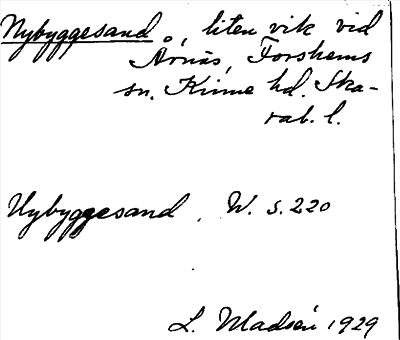 Nybyggesand, liten vik vid
Årnäs, Forshems
sn. Kinne hd. Ska-
rab. l.
Nybyggesand. W. s. 220
L. Madsén 1929